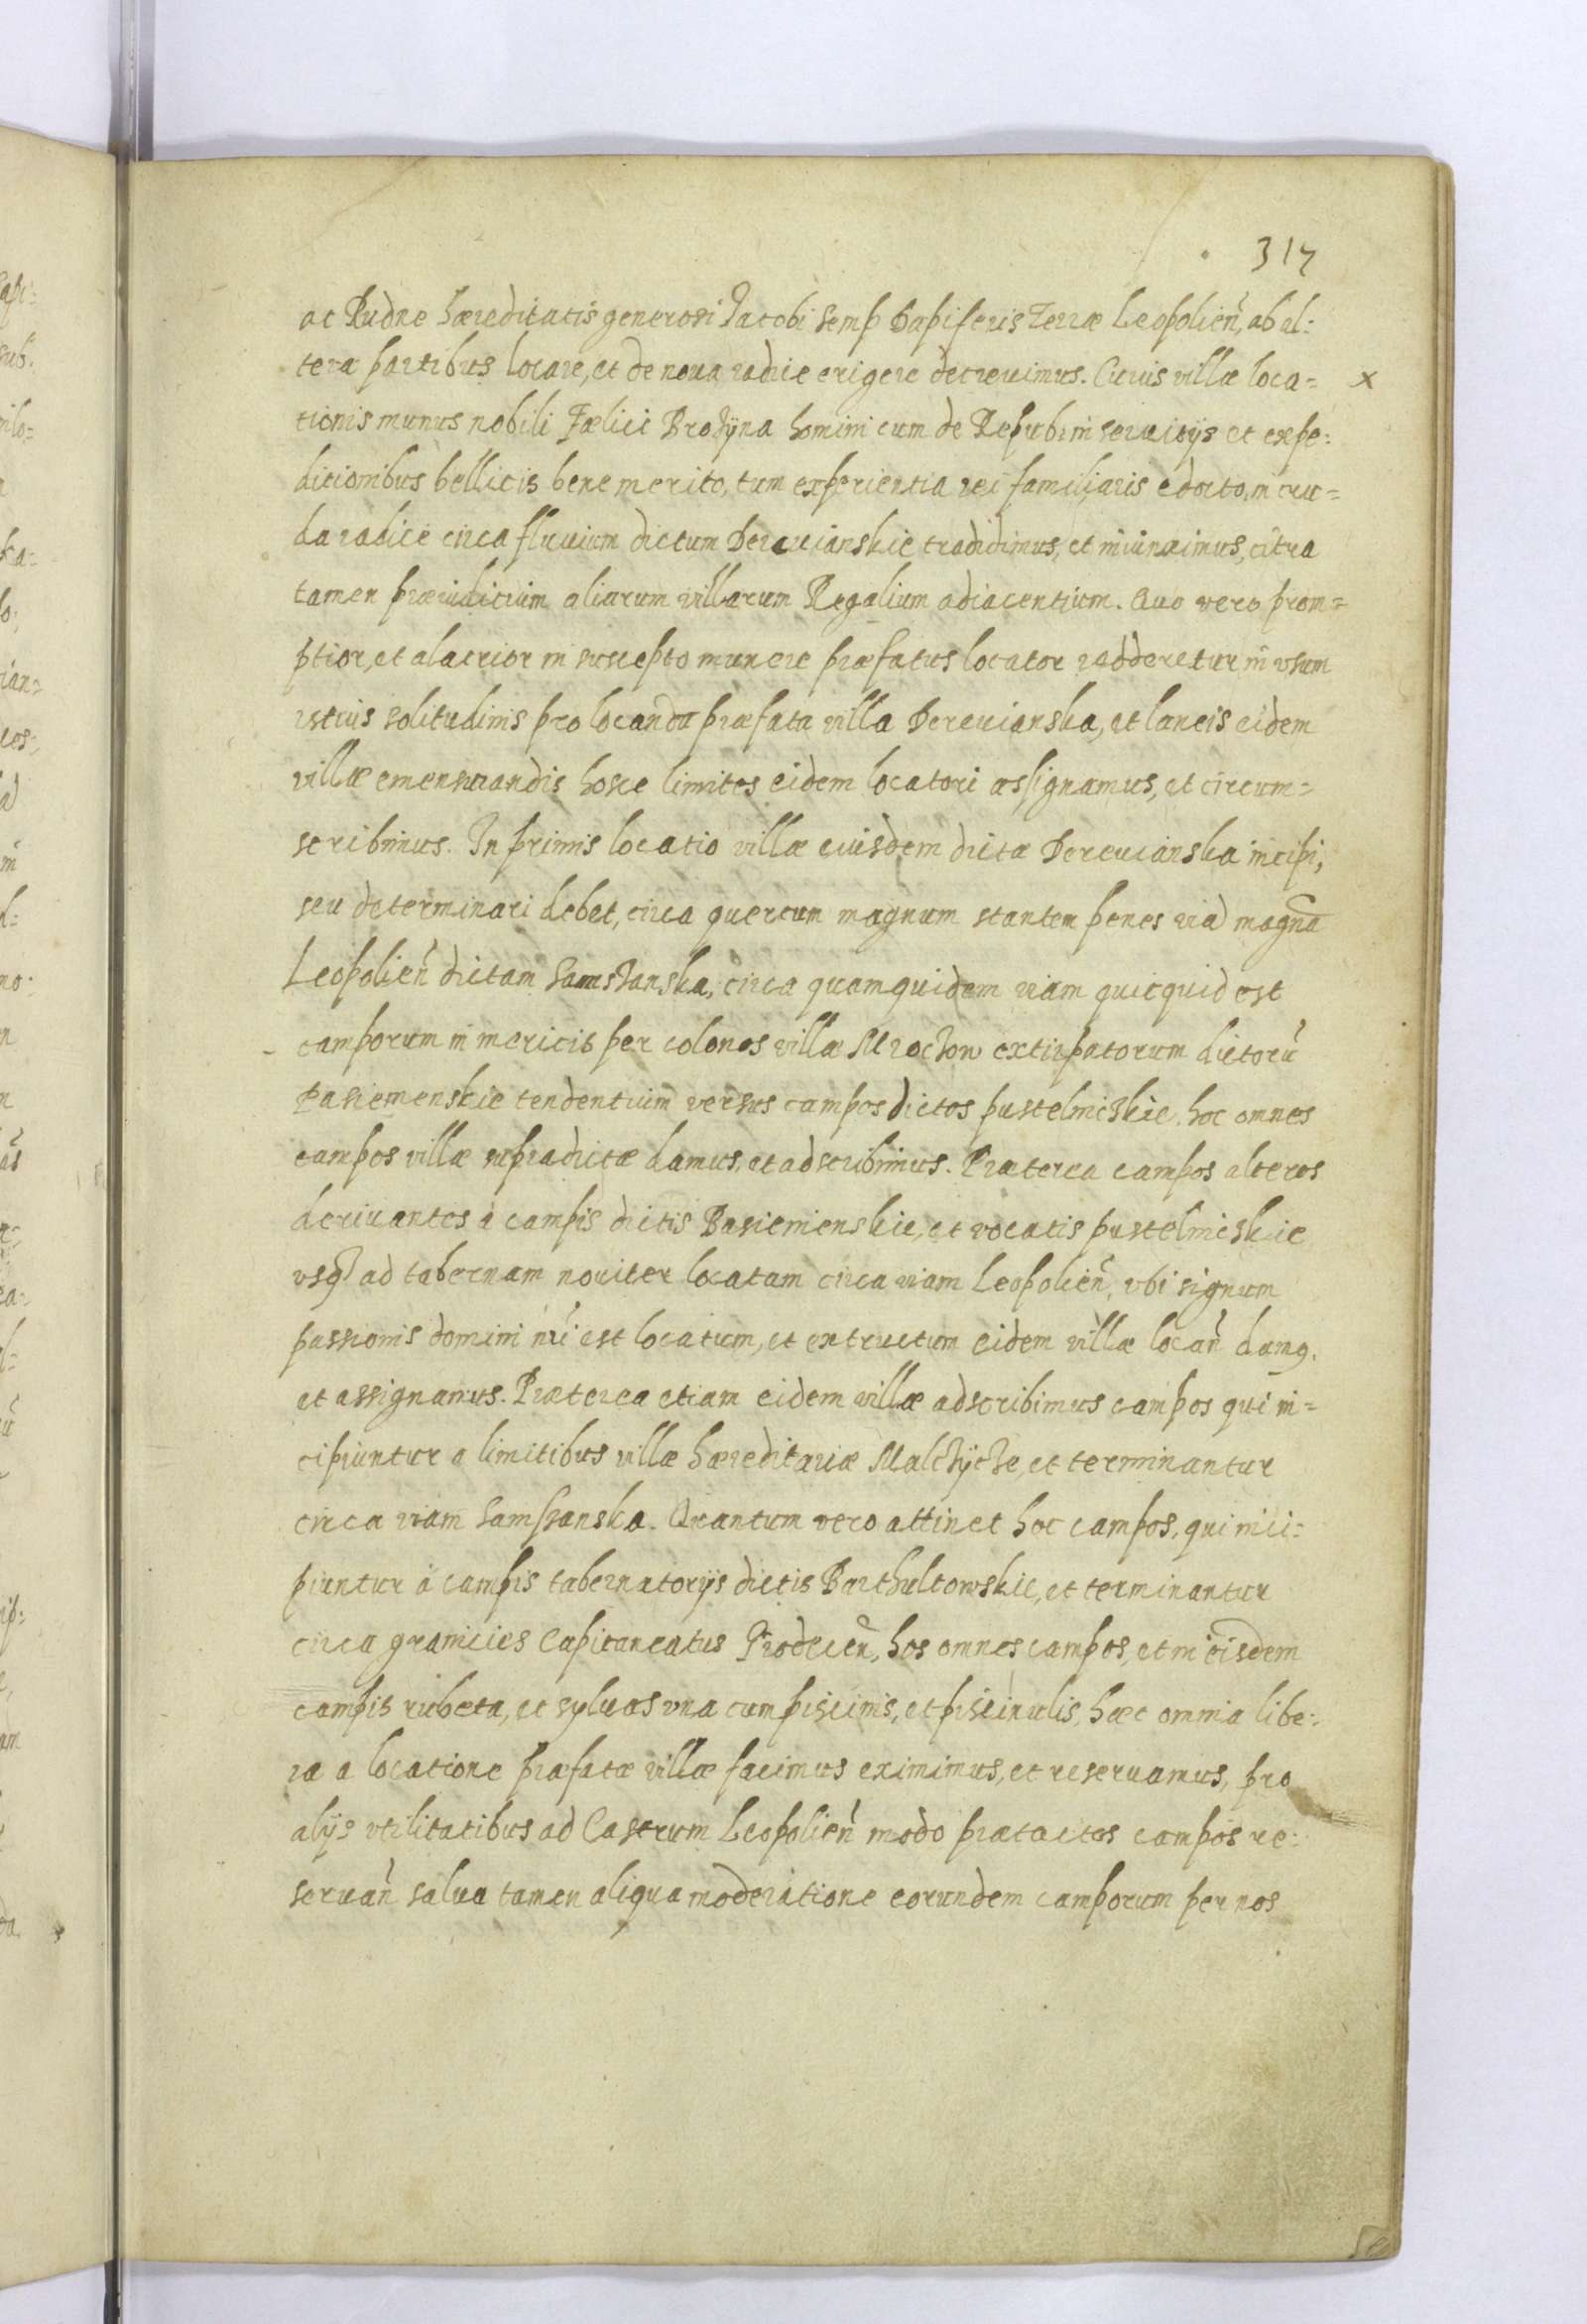 317
ac Rudne hæreditatis generosi Jacobi Semp Dapiferis Terræ Leopolień, ab al:
tera partibus locare, et de noua radice erigere decreuimus. Cuius villæ loca= x
tionis munus nobili Fælici Brozÿna homini cum de Repub: in seruitijs et expe:
ditionibus bellicis bene merito, tum experientia rei familiaris edocto, in cru=
da radice circa fluuium dictum Dereuianskie tradidimus, et iniunximus, citra
tamen præiudicium aliarum villarum Regalium adiacentium. Quo vero prom=
ptior, et alacrior in suscepto munere præfatus locator redderetur in vsum
istius solitudinis pro locanda præfata villa Dereuianska, et laneis eidem
villæ emensurandis hosce limites eidem locatori assignamus, et circum=
scribimus. In primis locatio villæ eiusdem dictæ Dereuianska incipi,
seu determinari debet, circa quercum magnum stantem penes viã magnã
Leopolień dictam Samszanska, circa quam quidem viam quicquid est
camporum in mericis per colonos villæ Mroczow extirpatorum dictorũ
Basiemenskie tendentium versus campos dictos pustelnicskie, hoc omnes
campos villæ supradictæ damus, et adscribimus. Præterea campos alteros
deriuantes à campis dictis Basiemienskie, et vocatis pustelnicskie
vsq̃ ad tabernam nouiter locatam circa viam Leopolień, vbi signum
passionis domini nrĩ est locatum, et extructum eidem villæ locań damq,
et assignamus. Præterea etiam eidem villæ adscribimus campos qui in=
cipiuntur a limitibus villæ hæreditariæ Malczÿcze, et terminantur
circa viam Samszanska. Quantum vero attinet hoc campos, qui inci=
piuntur à campis tabernatorijs dictis Barthultowskie, et terminantur
circa granicies Capitaneatus Grodeceń, hos omnes campos, et in eisdem
campis rubeta, et syluas vna cum piscinis, et piscinulis, hæc omnia libe:
ra a locatione præfatæ villæ facimus eximimus, et reseruamus, pro
alijs vtilitatibus ad Castrum Leopolień modo prætactos campos re:
seruań salua tamen aliqua moderatione eorundem camporum per nos